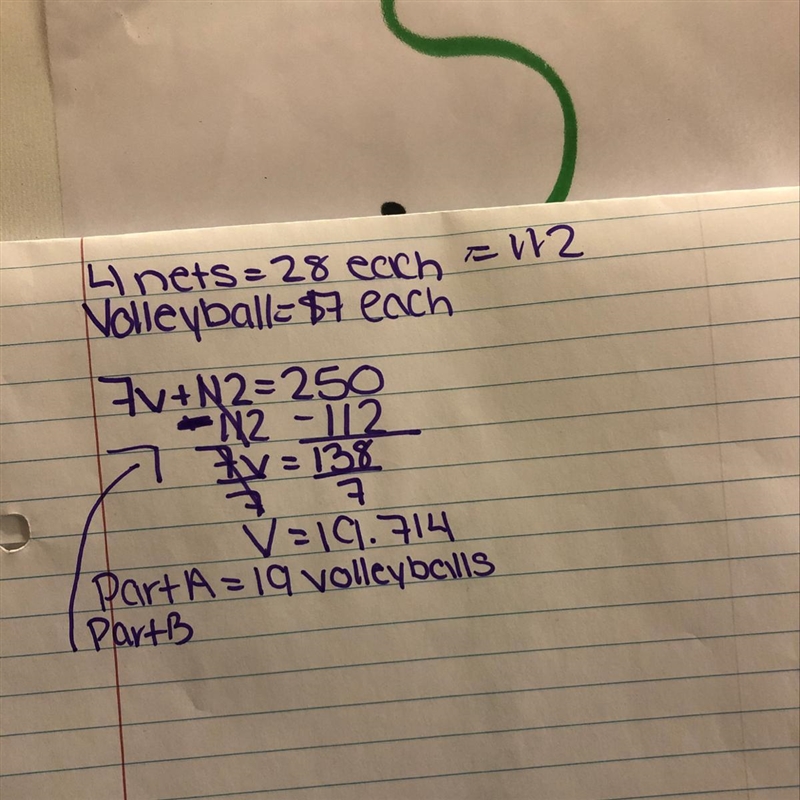 4 nets = 28 each = 112
Volleyball = $7 each
7v + 112 = 250
- 112 - 112
7v = 138
7 7
V = 19.714
Part A = 19 volleyballs
Part B